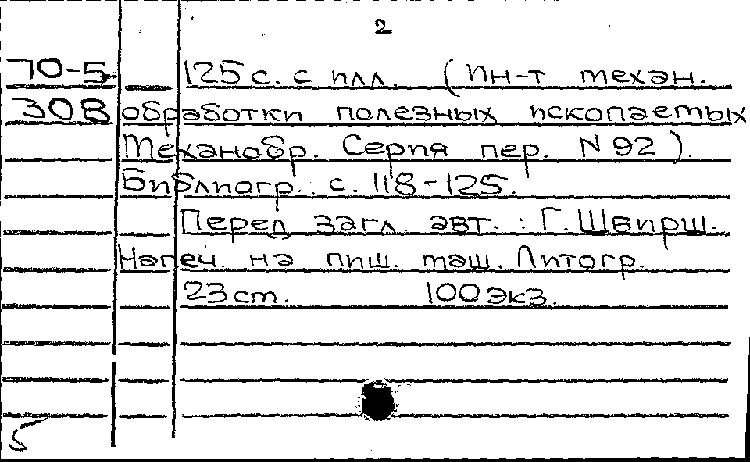 2
70-5 125 с. с илл. (Ин-т механ.
308 обработки полезных ископаемых
Механобр. Серия пер. N 92).
Библиогр.: с. 118-125.
Перед загл. авт.: Г. Швирш.
Напеч на пиш. маш. Литогр.
23 ст. 100 экз.
5